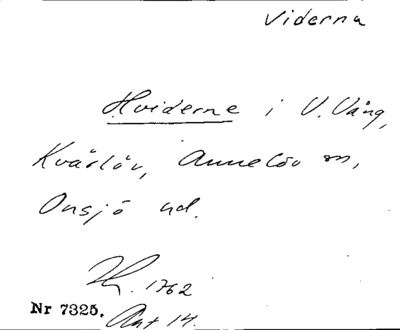 Viderna
Hviderne i V. Vång,
Kvärlöv, Annelöv sn,
Onsjö hd.
1762
Nr 7325. Akt 14.